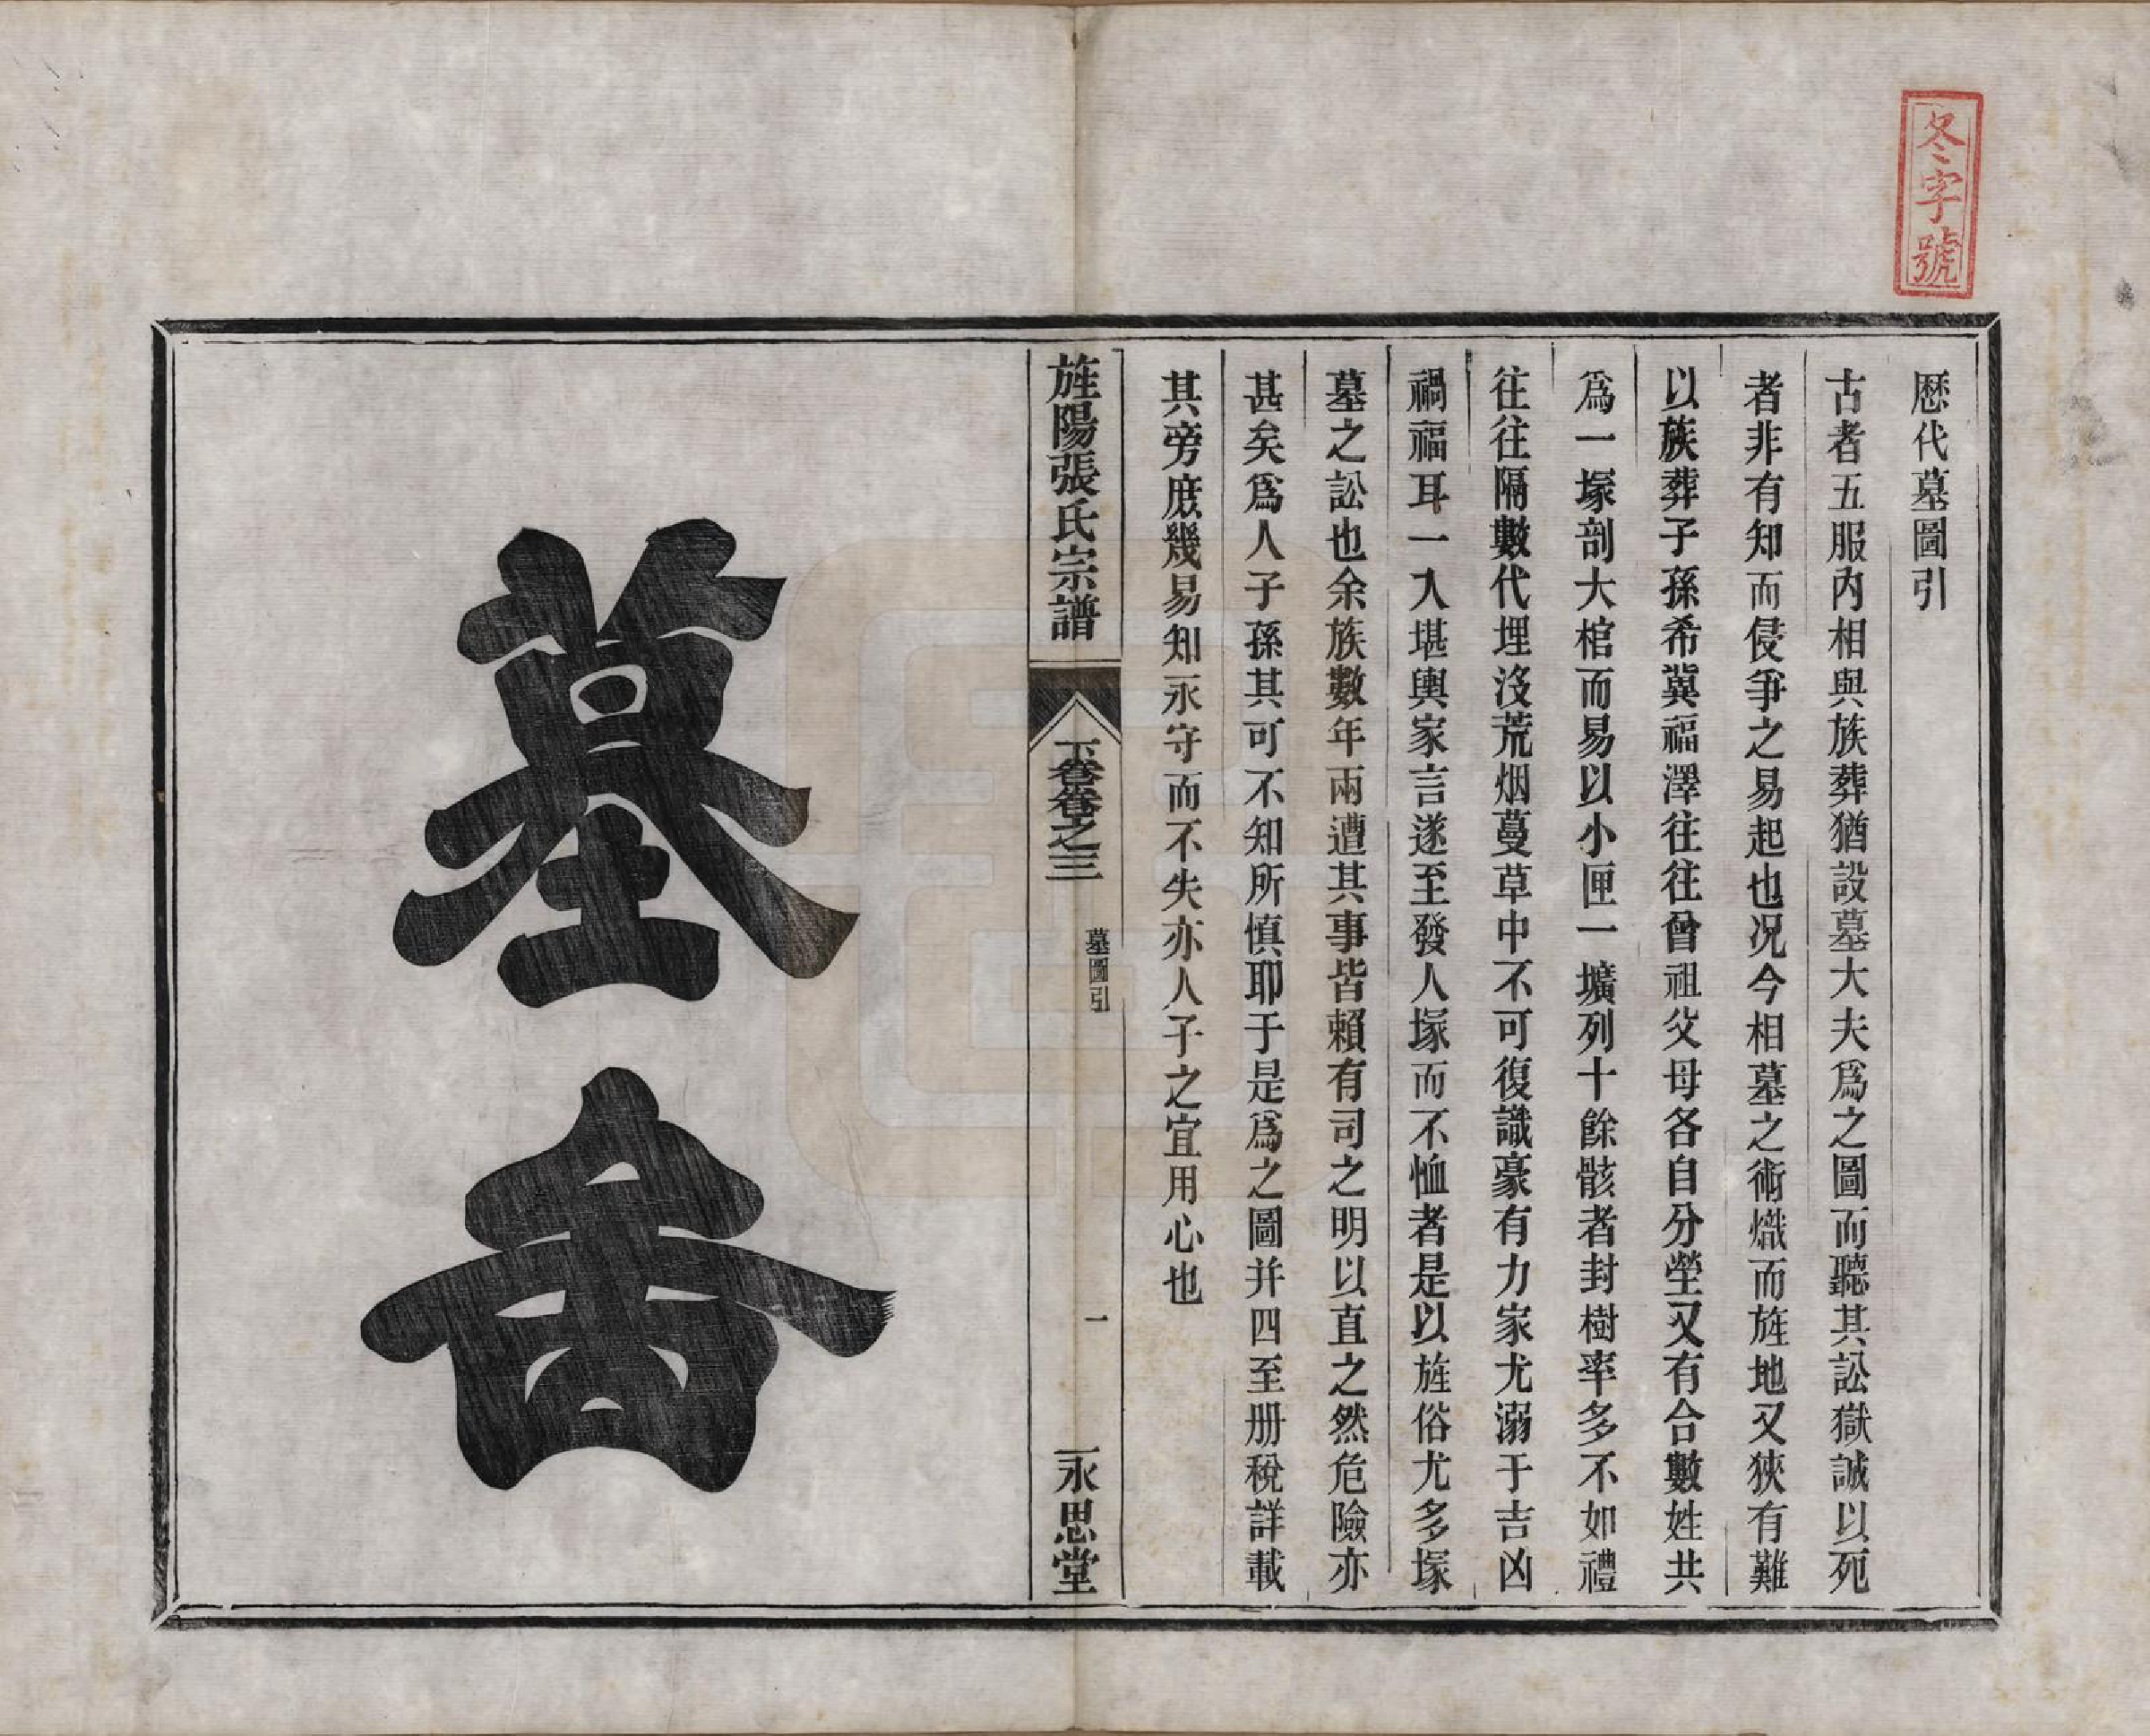 冬字號
歷代墓圖引
古者五服內相與族葬猶設墓大夫爲之圖而聽其訟獄誠以死
者非有知而侵爭之易起也况今相墓之術熾而旌地又狹有難
以族葬子孫希冀福澤往往曾祖父母各自分塋又有合數姓共
爲一塚剖大棺而易以小匣一壙列十餘骸者封樹率多不如禮
往往隔數代埋沒荒烟蔓草中不可復識豪有力家尤溺于吉凶
禍福耳一入堪輿家言遂至發人塚而不恤者是以旌俗尤多塚
墓之訟也余族數年兩遭其事皆賴有司之明以直之然危險亦
甚矣爲人子孫其可不知所慎耶于是爲之圖并四至册稅詳載
其旁庶幾易知永守而不失亦人子之宜用心也
旌陽張氏宗譜
下卷卷之三
墓圖引
一
永思堂
墓啚